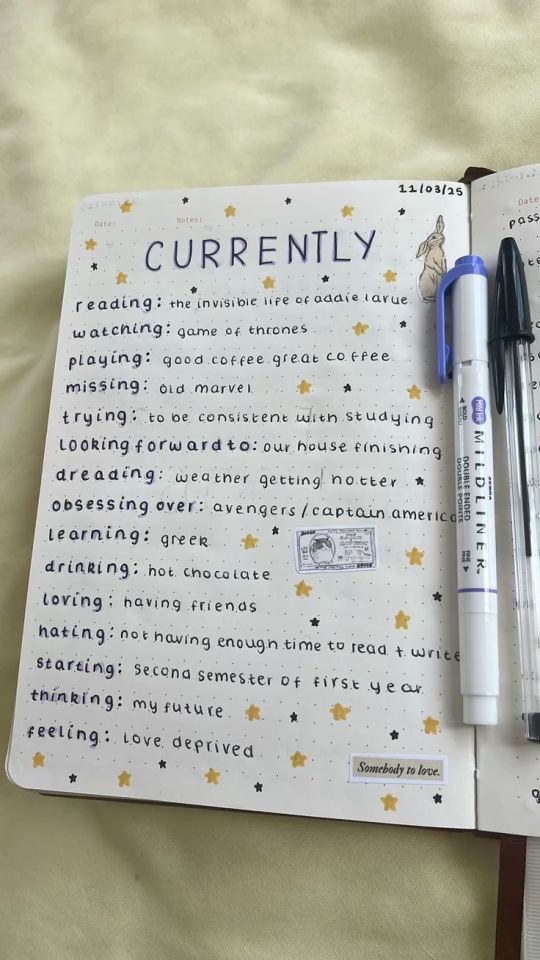 11/03/25
Date:
Notes:
CURRENTLY
reading: the invisible life of addie larue
watching: game of thrones
playing: good coffee great coffee
missing: old marvel
trying: to be consistent with studying
looking forward to: our house finishing
dreading: weather getting hotter
obsessing over: avengers/captain america
learning: greek
drinking: hot chocolate
loving: having friends
hating: not having enough time to read + write
starting: second semester of first year
thinking: my future
feeling: love deprived
Somebody to love.
MILDLINER™
ZEBRA
DOUBLE ENDED
DOUBLE POINTE
BOLD
FINE
Date
pass